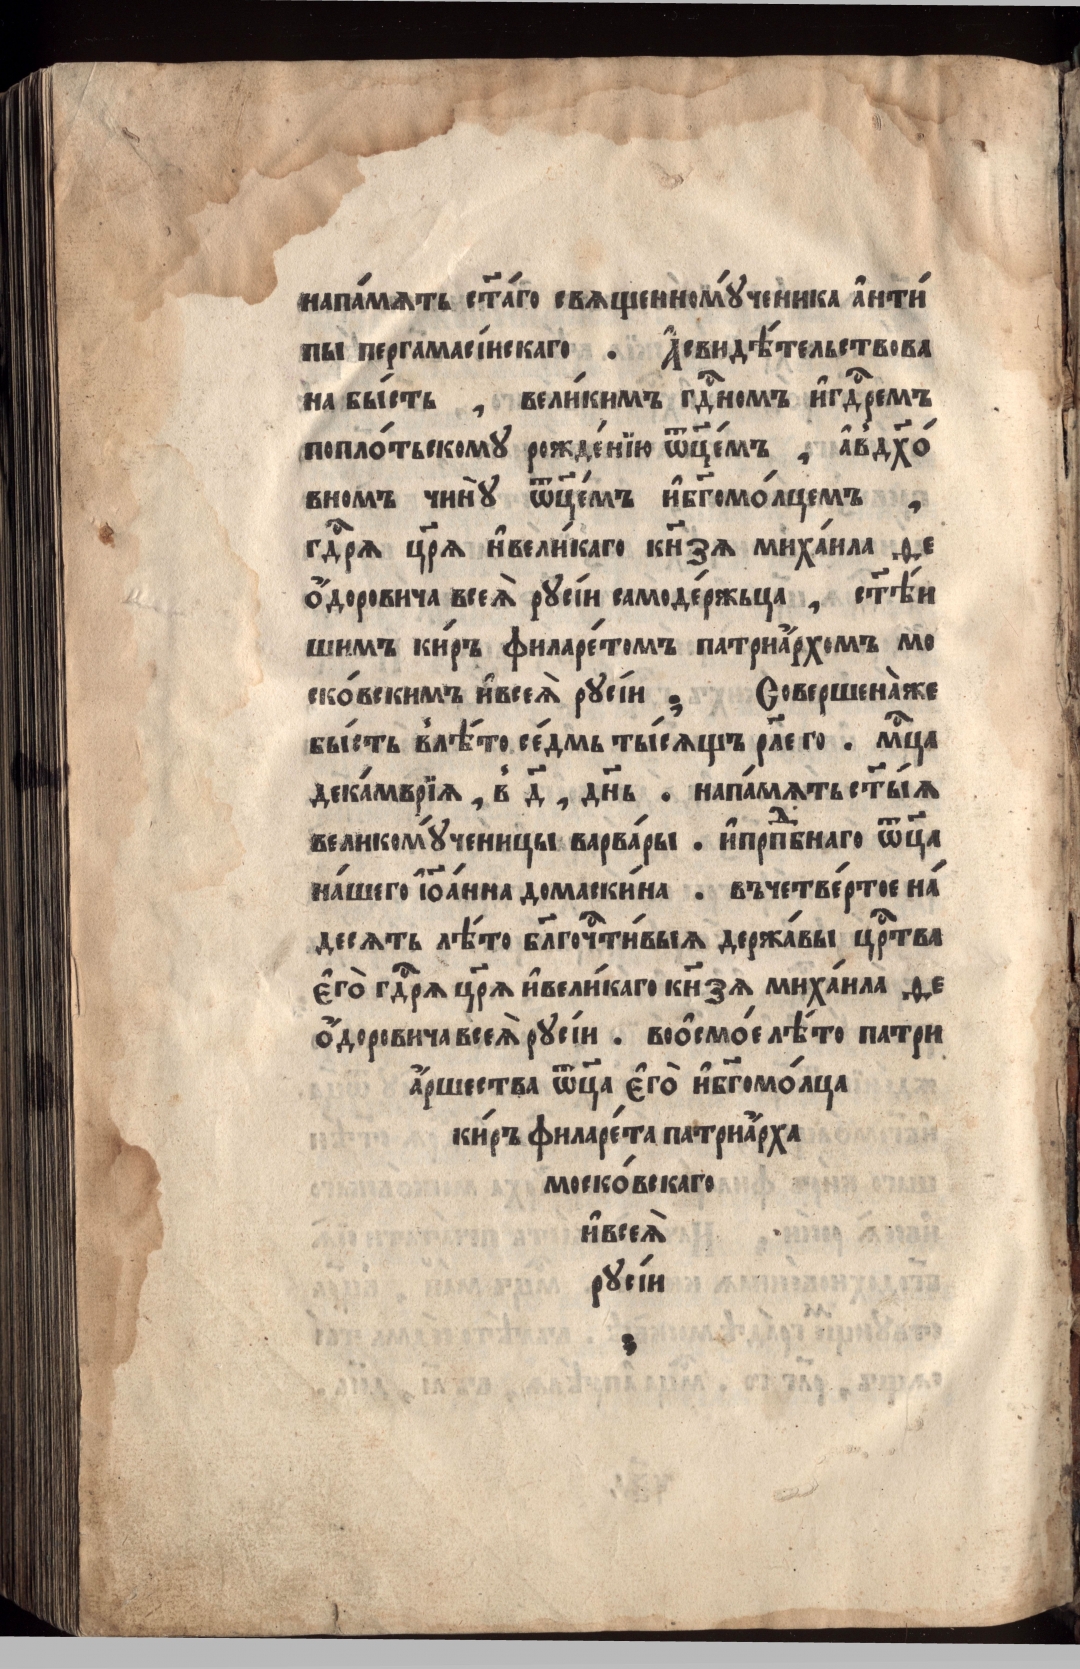 напа́мѧть ст҃а́го свѧщенному́ченика а҆нти́
пы пергамасі́нскаго . А҆свидѣ́тельствова
на бы́сть , вели́кимъ гдⷭ҇номъ и҆гдⷭ҇ремъ
попло́тьскому рожде́нїю ѿц҃е́мъ , а҆в̾дх҃о́
вномъ чи́нꙋ ѿц҃е́мъ и҆бг҃омо́лцемъ ,
гдⷭ҇рѧ цр҃ѧ и҆вели́каго кн҃зѧ миха́ила ѳе
ѻ҆́доровича всеѧ̀ рꙋсі́и самоде́ржьца , ст҃ѣ́и
шимъ ки́ръ филаре́томъ патриа́рхомъ мо
ско́вскимъ и҆всеѧ̀ рꙋсі́и . Соверше́на̀же
бы́сть в̾лѣ́то се́дмь ты́сѧщъ рл҃е го . мцⷭ҇а
дека́мврїѧ , в̾ д҃ , дн҃ь . напа́мѧть ст҃ы́ѧ
великомꙋ́ченицы варва́ры . и҆прпⷣбнаго ѿц҃а
на́шего і҆ѡ҃а́нна домаски́на . въчетве́ртое на́
десѧть лѣ́то бл҃гочⷭ҇ти́выѧ держа́вы црⷭ҇тва
є҆го̀ гдⷭ҇рѧ цр҃ѧ и҆вели́каго кн҃зѧ миха́ила ѳе
ѻ҆́доровича всеѧ̀ рꙋсі́и . воѻ҆смо́е лѣ́то патри
а́ршества ѿц҃а є҆го̀ и҆бг҃омо́лца
ки́ръ филаре́та патриа́рха
моско́вскаго
и҆всеѧ̀
рꙋсі́и